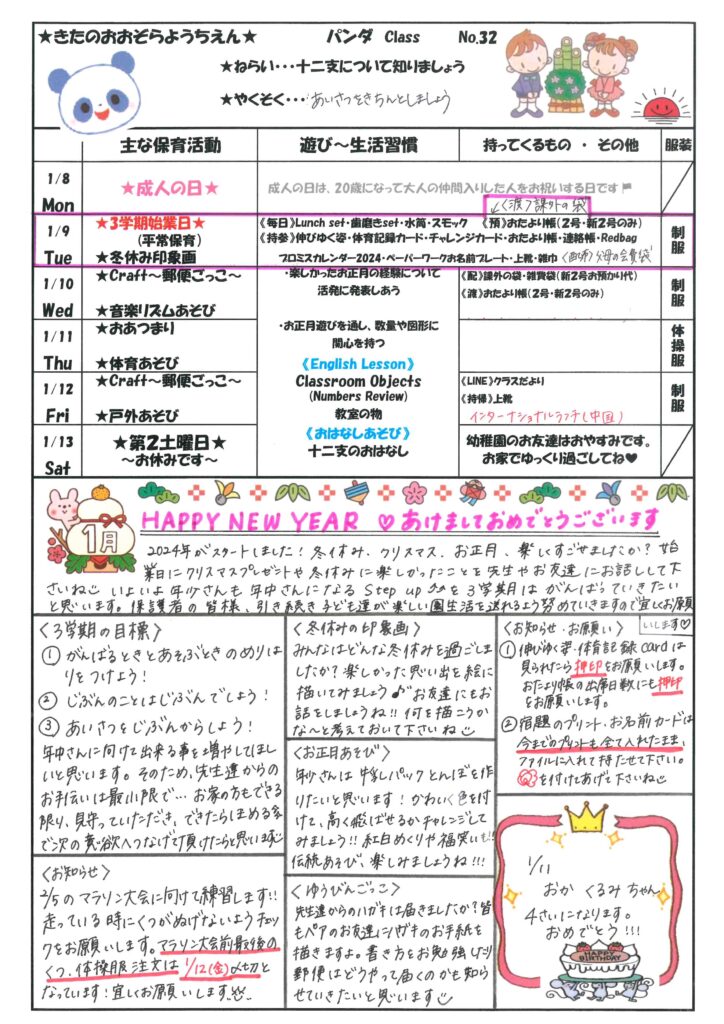 ★きたのおおぞらようちえん★ パンダ Class No.32
★ねらい・・・十二支について知りましょう
★やくそく・・・あいさつをきちんとしましょう
主な保育活動 遊び～生活習慣 持ってくるもの ・ その他 服装
1/8 Mon
★成人の日★
成人の日は、20歳になって大人の仲間入りした人をお祝いする日です
↙〈渡〉課外の袋
1/9 Tue
★3学期始業日★
(平常保育)
★冬休み印象画
《毎日》Lunch set・歯磨きset・水筒・スモック 《預》おたより帳(2号・新2号のみ)
《持参》伸びゆく姿・体育記録カード・チャレンジカード・おたより帳・連絡帳・Redbag
プロミスカレンダー2024・ペーパーワークお名前プレート・上靴・雑巾 〈配布〉父母の会費袋
制服
1/10 Wed
★Craft～郵便ごっこ～
★音楽リズムあそび
・楽しかったお正月の経験について
活発に発表しあう
《配》課外の袋・雑費袋(新2号お預かり代)
《渡》おたより帳(2号・新2号のみ)
制服
1/11 Thu
★おあつまり
★体育あそび
・お正月遊びを通し、数量や図形に
関心を持つ
《English Lesson》
体操服
1/12 Fri
★Craft～郵便ごっこ～
★戸外あそび
Classroom Objects
(Numbers Review)
教室の物
《LINE》クラスだより
《持帰》上靴
インターナショナルランチ(中国)
制服
1/13 Sat
★第2土曜日★
～お休みです～
《おはなしあそび》
十二支のおはなし
幼稚園のお友達はおやすみです。
お家でゆっくり過ごしてね♥
1月
HAPPY NEW YEAR ♡あけましておめでとうございます
2024年がスタートしました！冬休み、クリスマス、お正月、楽しくすごせましたか？始
業日にクリスマスプレゼントや冬休みに楽しかったことを先生やお友達にお話しして下
さいね いよいよ年少さんも年中さんになるStep upの3学期はがんばっていきたい
と思います。保護者の皆様、引き続き子ども達が楽しい園生活を送れるよう努めていきますので宜しくお願
いします♡
〈3学期の目標〉
① がんばるときとあそぶときのめりは
りをつけよう！
② じぶんのことはじぶんでしよう！
③ あいさつをじぶんからしよう！
年中さんに向けて出来る事を増やしてほし
いと思います。そのため、先生達からの
お手伝いは最小限で… お家の方もできる
限り、見守っていただき、できたらほめる事
で次の意欲へつなげて頂けたらと思います
〈お知らせ〉
2/5のマラソン大会に向けて練習します!!
走っている時にくつがぬげないようチェッ
クをお願いします。マラソン大会前最後の
くつ、体操服注文は1/12(金)〆切と
なっています！宜しくお願いします
〈冬休みの印象画〉
みんなはどんな冬休みを過ごしま
したか？楽しかった思い出を絵に
描いてみましょう♪お友達にもお
話をしましょうね!!何を描こうか
な～と考えておいて下さいね
〈お正月あそび〉
年少さんは牛乳パックとんぼを作
りたいと思います！かわいく色を付
けて、高く飛ばせるかチャレンジして
みましょう!!紅白めくりや福笑いも!!
伝統あそび、楽しみましょうね!!!
〈ゆうびんごっこ〉
先生達からのハガキは届きましたか？皆
もペアのお友達にハガキのお手紙を
描きますよ。書き方をお勉強したり
郵便はどうやって届くのかも知ら
せていきたいと思います
〈お知らせ・お願い〉
① 伸びゆく姿・体育記録cardは
見られたら押印をお願いします。
おたより帳の出席日数にも押印
をお願いします。
② 宿題のプリント・お名前カードは
今までのプリントも全て入れたまま、
ファイルに入れて持たせて下さい。
を付けてあげて下さいね
1/11
おか くるみ ちゃん
4さいになります。
おめでとう!!!
HAPPY
BIRTHDAY